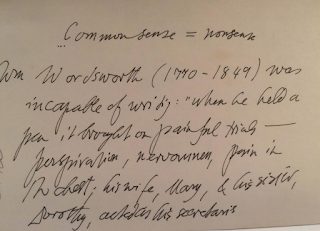 ...Common sense = nonsense
Wm Wordsworth (1770-1849) was
incapable of writing: "when he held a
pen it brought on painful trials —
perspiration, nervousness, pain in
the chest; his wife, Mary, & his sister,
Dorothy, acted as his secretaries